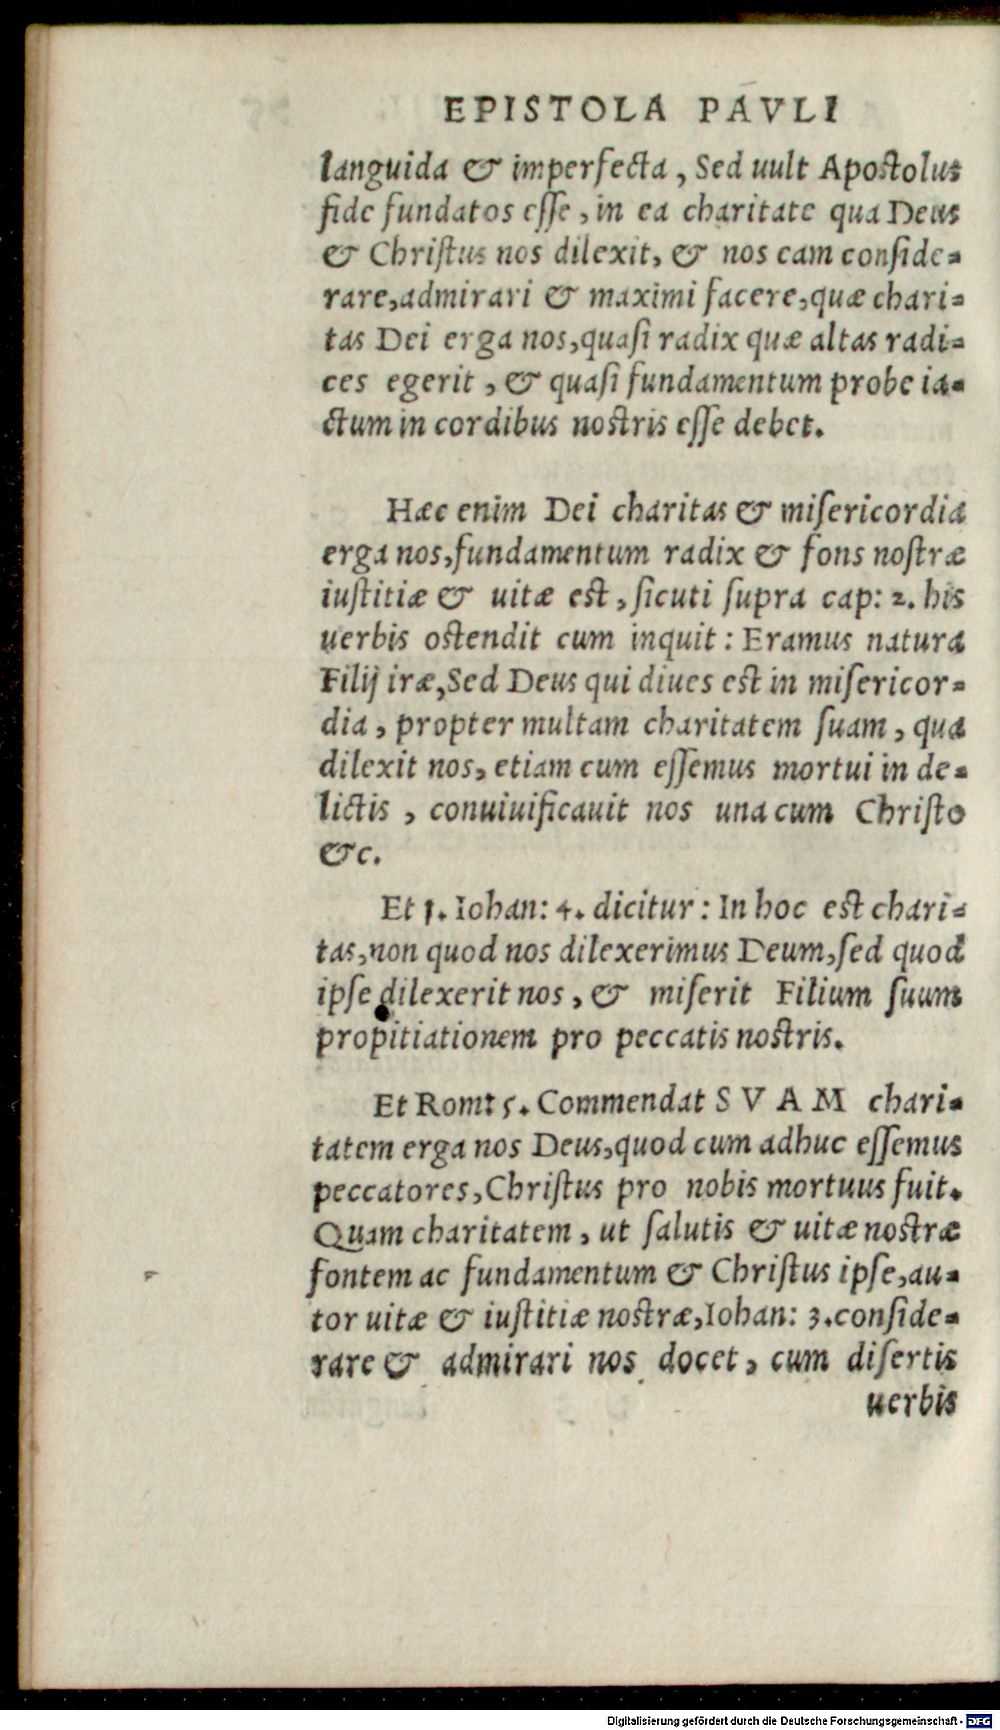 EPISTOLA PAVLI
languida & imperfecta, Sed uult Apostolus
fide fundatos esse, in ea charitate qua Deus
& Christus nos dilexit, & nos eam conside=
rare, admirari & maximi facere, quæ chari=
tas Dei erga nos, quasi radix quæ altas radi=
ces egerit, & quasi fundamentum probe ia=
ctum in cordibus nostris esse debet.
Hæc enim Dei charitas & misericordia
erga nos, fundamentum radix & fons nostræ
iustitiæ & uitæ est, sicuti supra cap: 2. his
uerbis ostendit cum inquit: Eramus natura
Filij iræ, Sed Deus qui diues est in misericor=
dia, propter multam charitatem suam, qua
dilexit nos, etiam cum essemus mortui in de=
lictis, conuiuificauit nos una cum Christo
&c.
Et 1. Iohan: 4. dicitur: In hoc est chari=
tas, non quod nos dilexerimus Deum, sed quod
ipse dilexerit nos, & miserit Filium suum
propitiationem pro peccatis nostris.
Et Rom: 5. Commendat SVAM chari=
tatem erga nos Deus, quod cum adhuc essemus
peccatores, Christus pro nobis mortuus fuit.
Quam charitatem, ut salutis & uitæ nostræ
fontem ac fundamentum & Christus ipse, au=
tor uitæ & iustitiæ nostræ, Iohan: 3. conside=
rare & admirari nos docet, cum disertis
uerbis
Digitalisierung gefördert durch die Deutsche Forschungsgemeinschaft - DFG